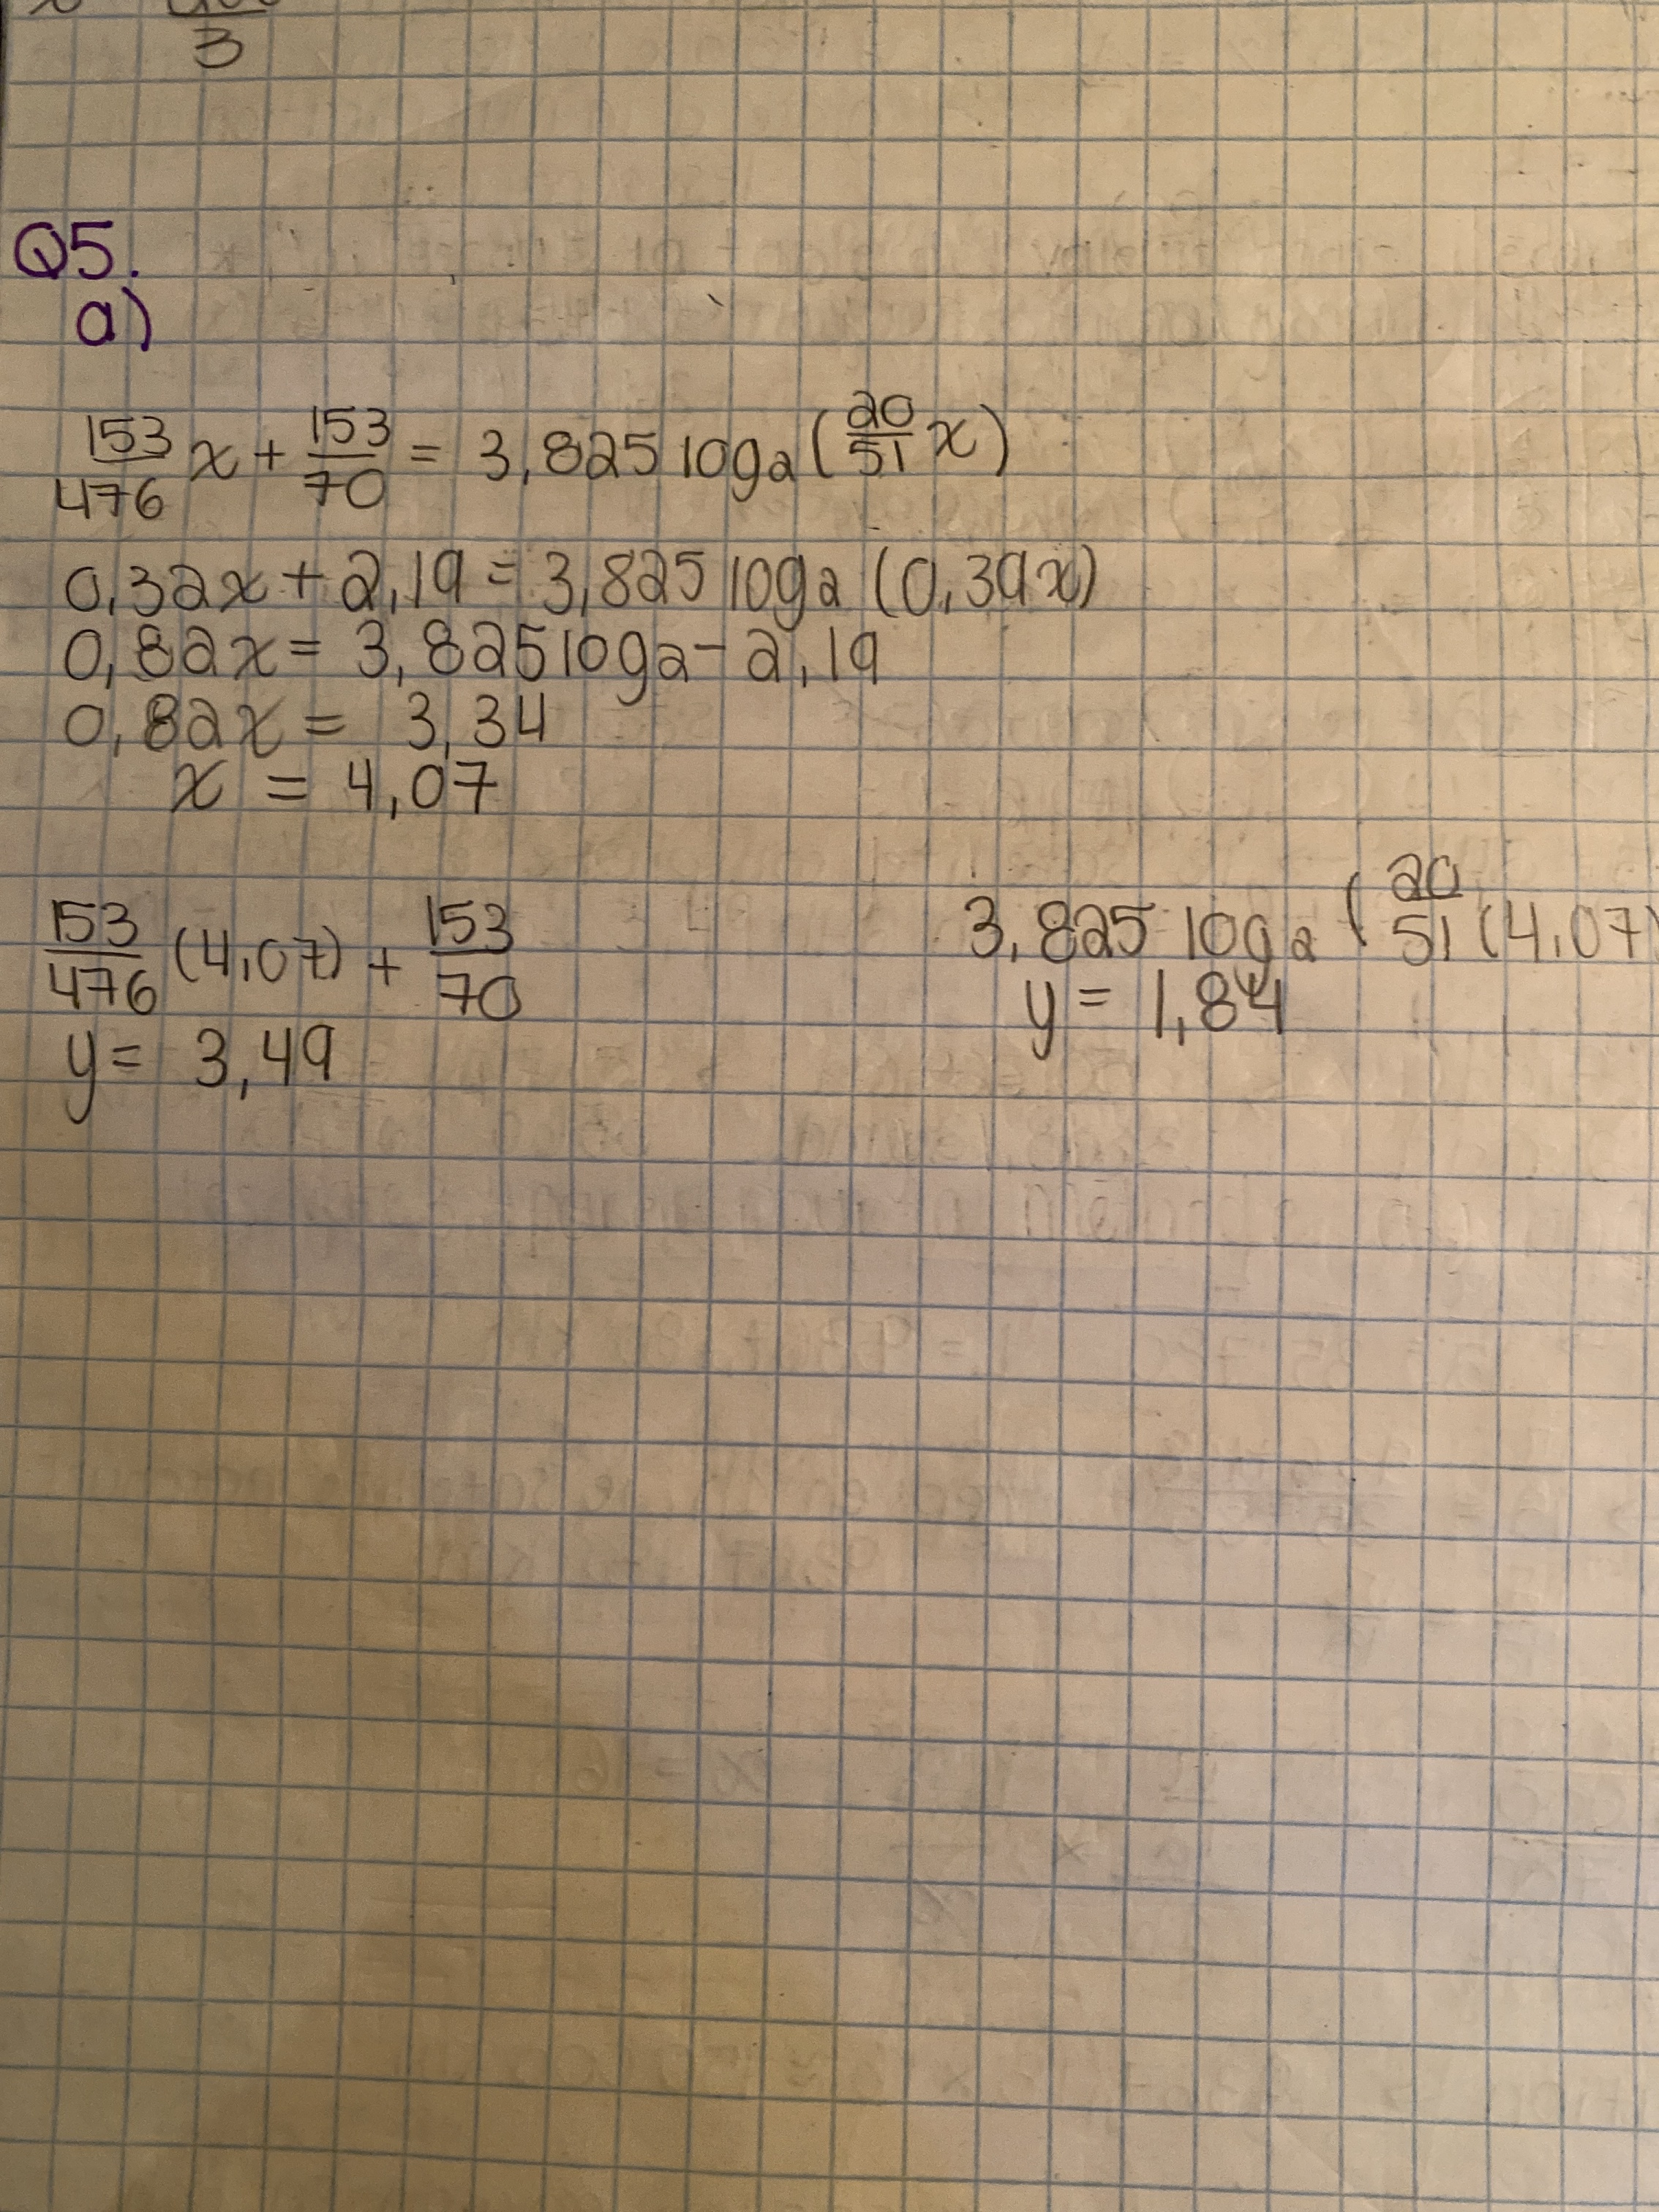 3
Q5.
a)
153/476 x + 153/70 = 3,825 log2 (20/51 x)
0,32x + 2,19 = 3,825 log2 (0,39x)
0,82x = 3,825 log2 - 2,19
0,82x = 3,34
x = 4,07
153/476 (4,07) + 153/70
y = 3,49
3,825 log2 (20/51 (4,07)
y = 1,84